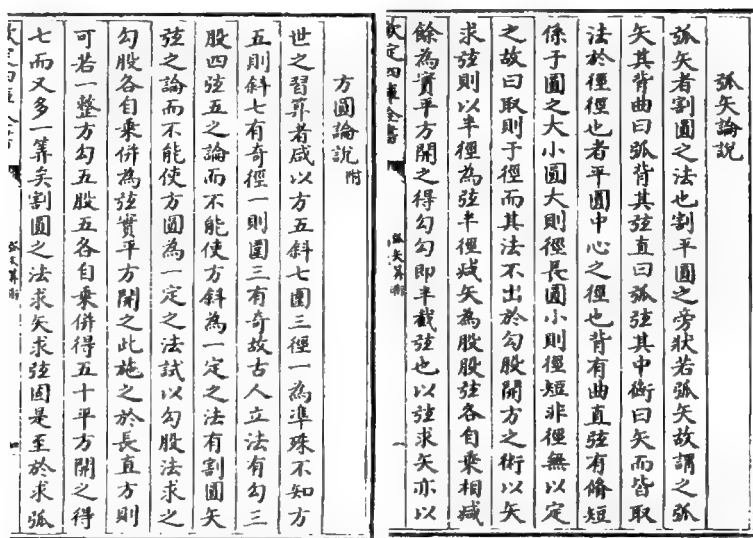 弧矢論説
弧矢者割圜之法也割平圜之旁狀若弧矢故謂之弧
矢其背曲曰弧背其弦直曰弧弦其中衡曰矢而皆取
法於徑徑也者平圜中心之徑也背有曲直弦有脩短
係于圜之大小圜大則徑長圜小則徑短非徑無以定
之故曰取則于徑而其法不出於勾股開方之術以矢
求弦則以半徑為弦半徑减矢為股股弦各自乗相减
餘為實平方開之得勾勾即半截弦也以弦求矢亦以
欽定四庫全書
弧矢算術
一
方圜論説 附
世之習算者咸以方五斜七圜三徑一為凖殊不知方
五則斜七有奇徑一則圜三有奇故古人立法有勾三
股四弦五之論而不能使方斜為一定之法有割圜矢
弦之論而不能使方圜為一定之法試以勾股法求之
勾股各自乗併為弦實平方開之此施之於長直方則
可若一整方勾五股五各自乗併得五十平方開之得
七而又多一算矣割圜之法求矢求弦固是至於求弧
欽定四庫全書
弧矢算術